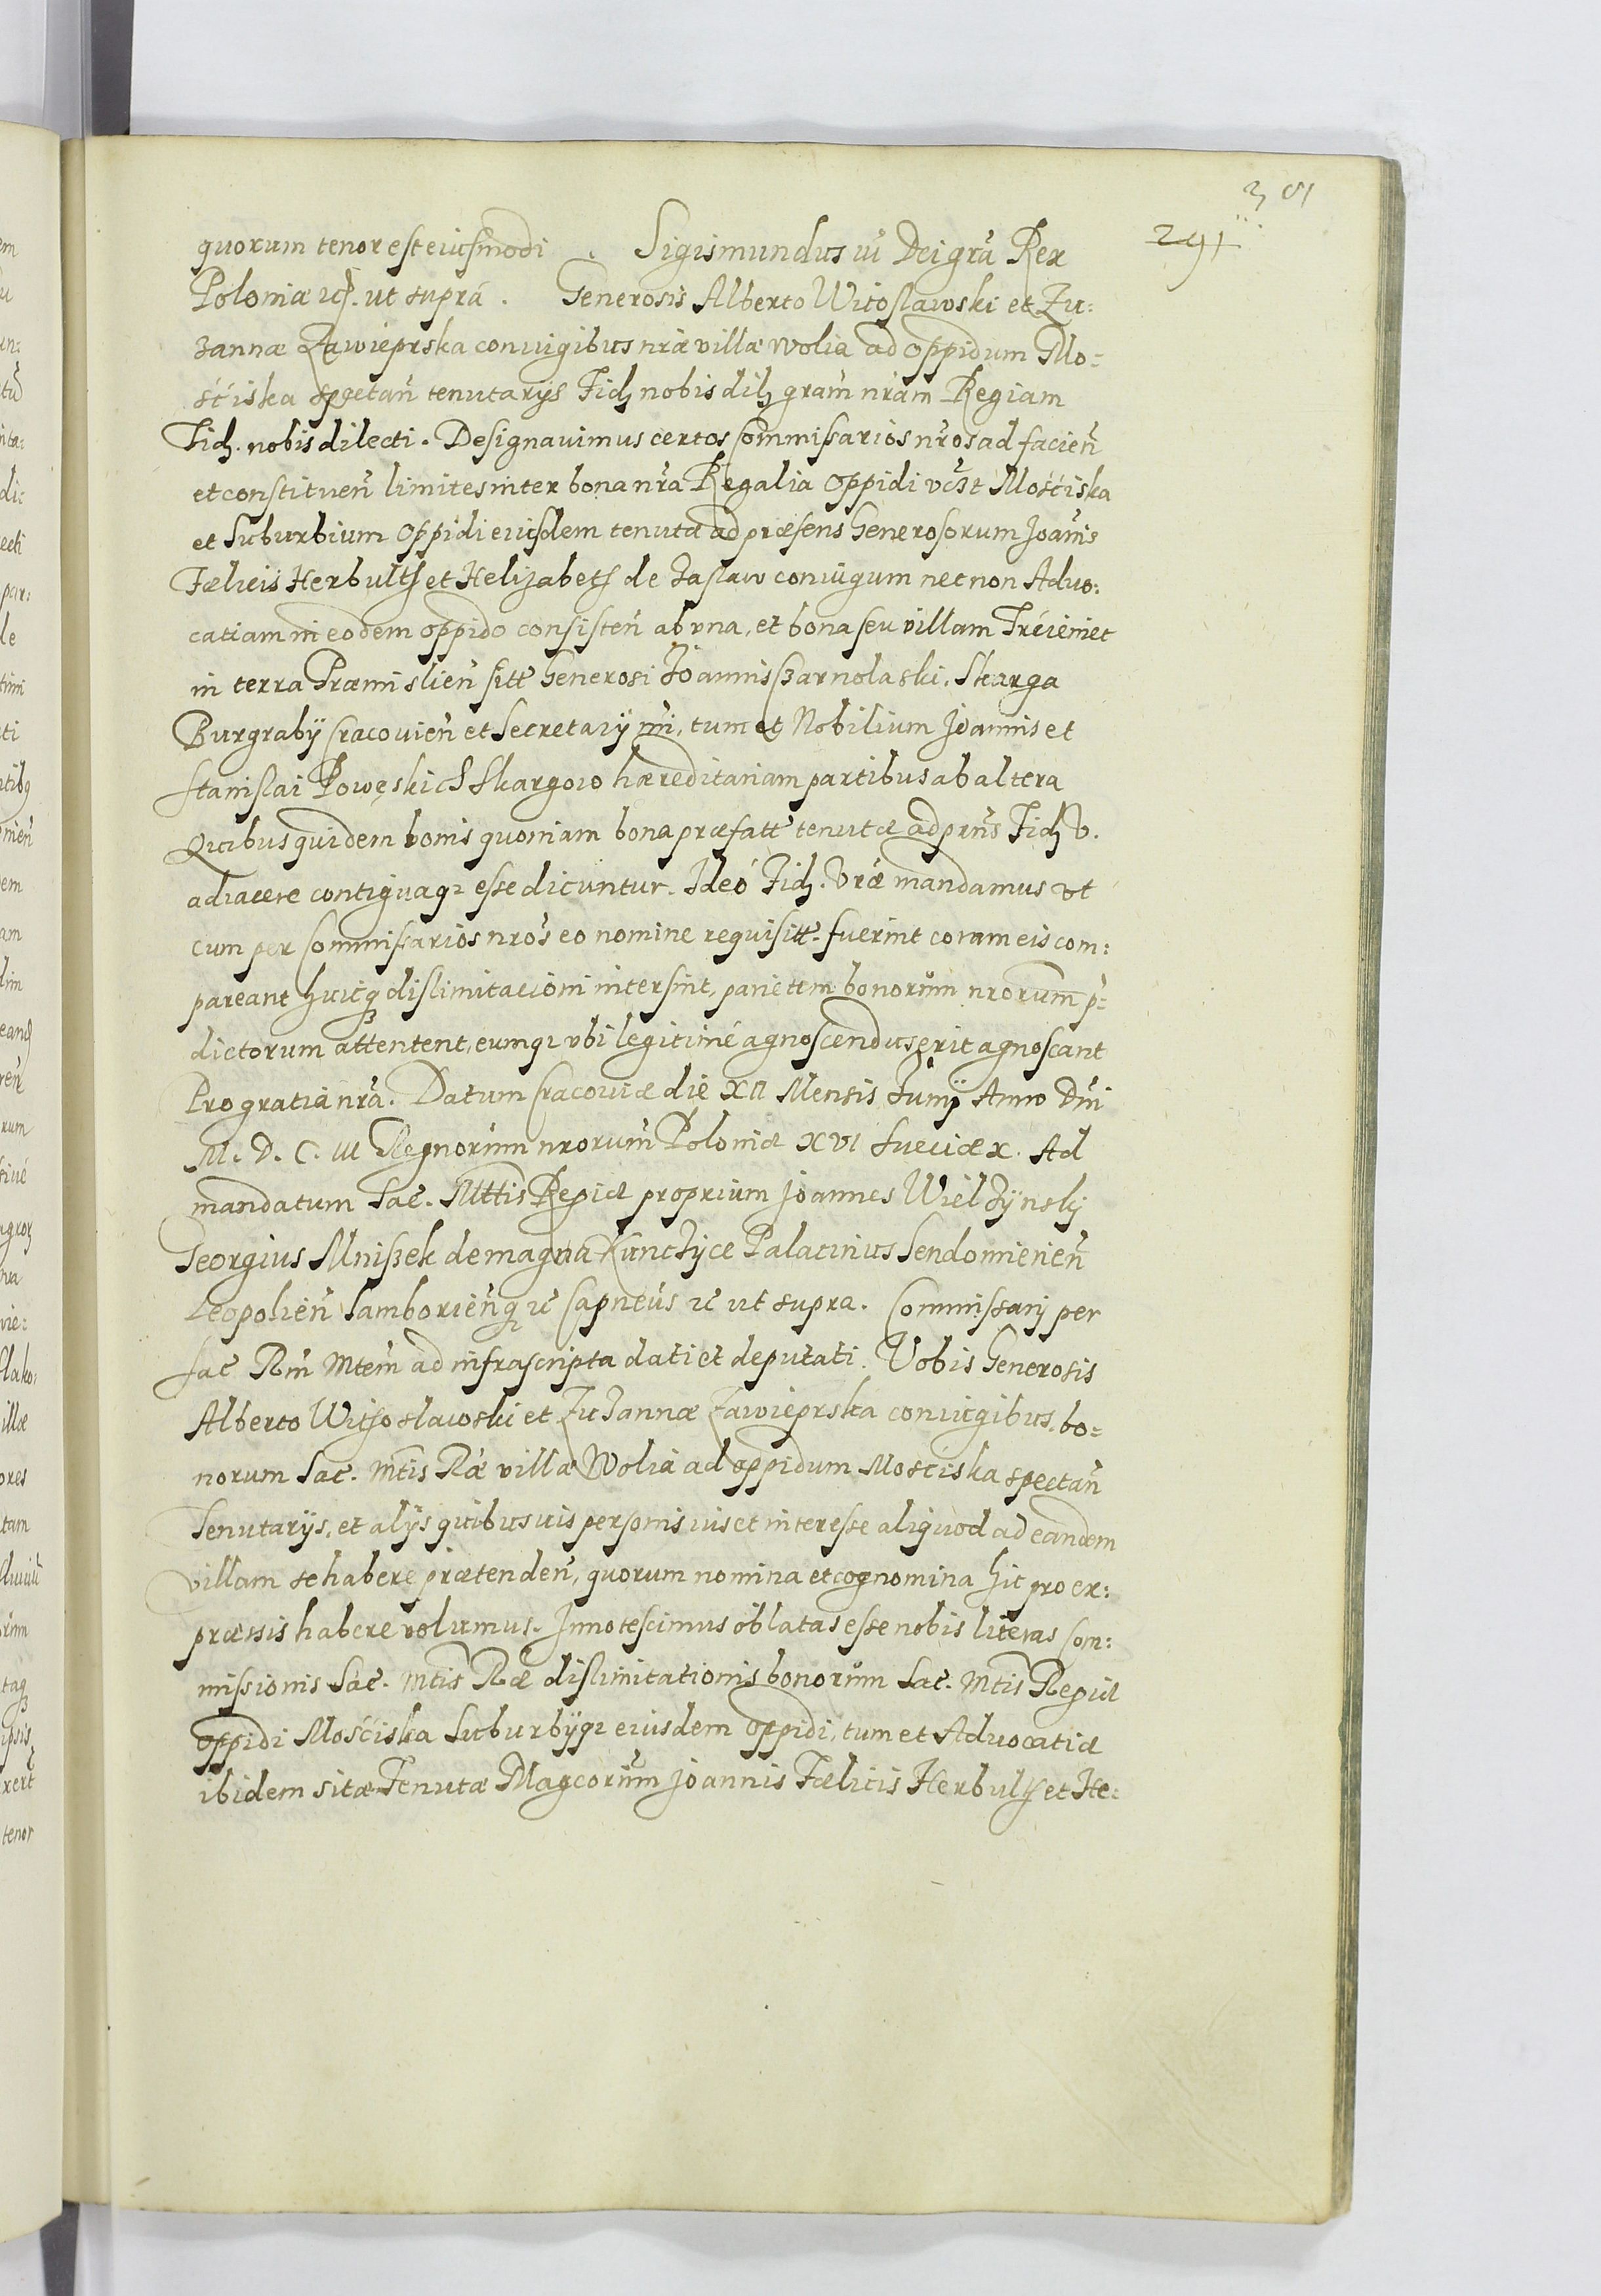 301
291
quorum tenor est eiusmodi. Sigismundus III Dei gra͂ Rex
Poloniæ etc. ut suprá. Generosis Alberto Witoslawski et Zu:
zannæ Zawieprska coniugibus nr͂æ villæ Wolia ad oppidum Mo=
śćiska spectan͂ tenutarÿs Fidz nobis dilz gram͂ nram͂ Regiam
Fidz. nobis dilecti. Designavimus certos Commissarios nr͂os ad facien͂
et constituen͂ limites inter bona nr͂a Regalia oppidi vcz͂t Mośćiska
et Suburbium oppidi eiusdem tenutæ ad præsens Generosorum Joan͂is
Fælicis Herbultß et Helizabetß de Zaslaw coniugum necnon Advo:
catiam in eodem oppido consisten͂ ab vna, et bona seu villam Trćieniec
in terra Præmislien͂ sitt͂ Generosi Joannis Czarnolaski. Skarga
Burgrabÿ Cracouien͂ et Secretarÿ nr͂i, tum et Nobilium Joannis et
Stanislai Powęskich Skargow hæreditariam partibus ab altera
Quibus quidem bonis quoniam bona præfatt͂ tenutæ ad prn͂s Fidz V.
adiacere contiguaq₃ esse dicuntur. Ideó Fidz. Vr͂æ mandamus vt
cum per Commissarios nr͂os eo nomine requisitt͂. fuerint coram eis com:
pareant huicq₃ dislimitacioni intersint, parietem bonorum͂ nrorum͂ p͂=
dictorum attentent, eumq₃ vbi legitimé agnoscendus erit agnoscant
Pro gratia nr͂a. Datum Cracouiæ die XII Mensis Junÿ Anno Dn͂i
M. D. C. III Regnorum͂ nrorum͂ Poloniæ XVI Sueciæ X. Ad
mandatum Sac. Mttis Regiæ proprium Joannes Wielzÿnskÿ
Georgius Mniszek de magna Kunczÿce Palatinus Sendomirien͂
Leopolien͂ Samborien͂q₃ etc Capneus͂ etc ut supra. Commissarij per
Sac Rm͂ Mtem͂ ad infrascripta dati et deputati. Vobis Generosis
Alberto Withoslawski et Zuzannæ Zawieprska coniugibus. bo=
norum Sac. Mtis͂ Ræ͂ villæ Wolia ad oppidum Mosciska spectan͂
Tenutarÿs, et alÿs quibusuis personis ius et interesse aliquod ad eandem
villam se habere prætenden͂, quorum nomina et cognomina hic pro ex:
præssis habere volumus. Innotescimus oblatas esse nobis literas Com:
missionis Sac. Mtis͂ Ræ͂ dislimitationis bonorum͂ Sac. Mtis͂ Regiæ
oppidi Mośćiska Suburbÿq₃ eiusdem oppidi, tum et Advocatiæ
ibidem sitæ Tenutæ Magcorum͂ Joannis Fælicis Herbultß et He: